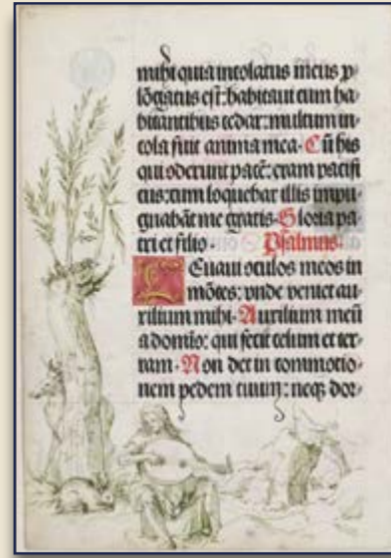 mihi quia incolatus meus p̱-
lõgatus est: habitaui cum ha-
bitantibus cedar: multum in-
cola fuit anima mea. Cũ his
qui oderunt pacẽ: eram pacifi
cus: cum loquebar illis impu-
gnabãt me gratis. Gloria pa-
tri et filio. Psalmus.
Leuaui oculos meos in
mõtes: vnde veniet au-
xilium mihi. Auxilium meũ
a domĩo: qui fecit celum et ter-
ram. Non det in commotio-
nem pedem tuum: neqꝫ dor-